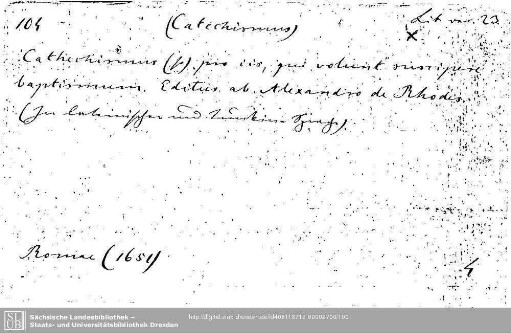 104 (Catechismus) Lit. var. 23
x
Cathechismus (p) pro iis, qui volunt suscipere
baptismum. Editus ab Alexandro de Rhodes.
(In lateinischer und Sprache)
Romae (1651)
4
Sächsische Landesbibliothek –
Staats- und Universitätsbibliothek Dresden